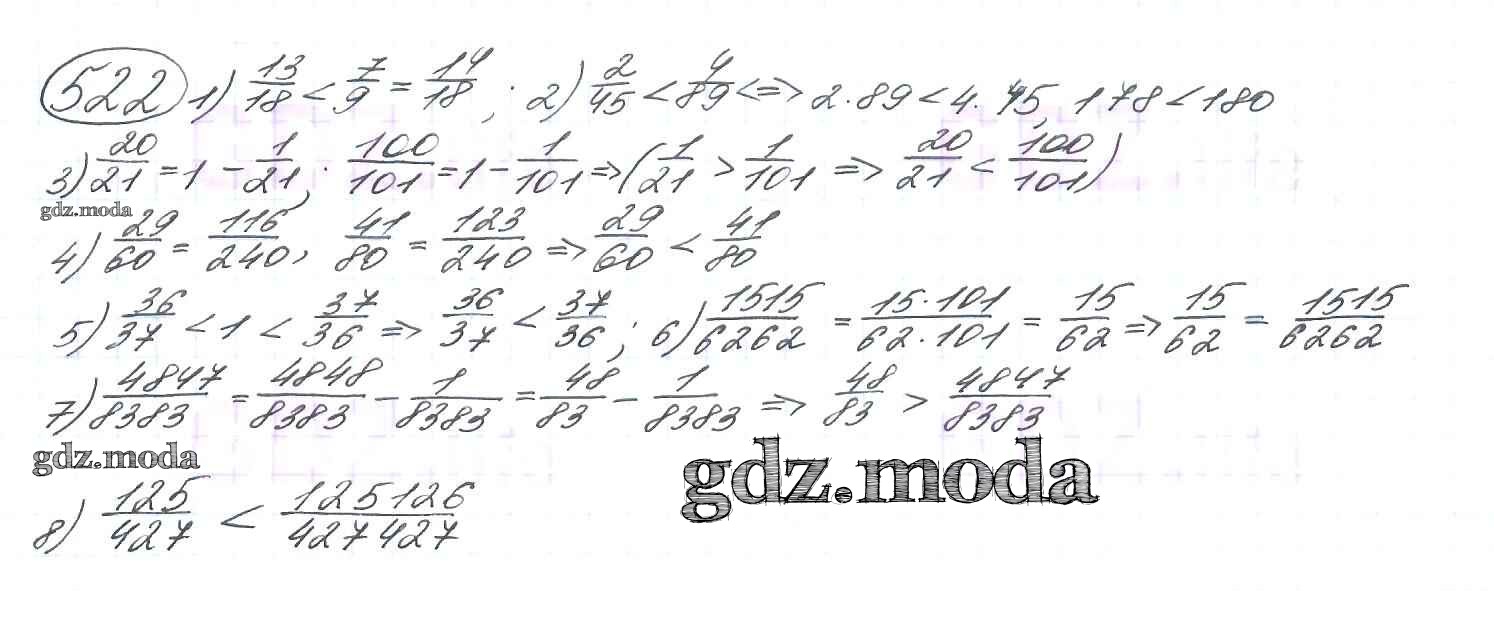 522 1) 13/18 < 7/9 = 14/18 ; 2) 2/45 < 4/89 <=> 2·89 < 4·45, 178 < 180
3) 20/21 = 1 - 1/21 ; 100/101 = 1 - 1/101 => (1/21 > 1/101 => 20/21 < 100/101)
gdz.moda
4) 29/60 = 116/240, 41/80 = 123/240 => 29/60 < 41/80
5) 36/37 < 1 < 37/36 => 36/37 < 37/36 ; 6) 1515/6262 = 15·101/62·101 = 15/62 => 15/62 = 1515/6262
7) 4847/8383 = 4848/8383 - 1/8383 = 48/83 - 1/8383 => 48/83 > 4847/8383
gdz.moda
gdz.moda
8) 125/427 < 125126/427427